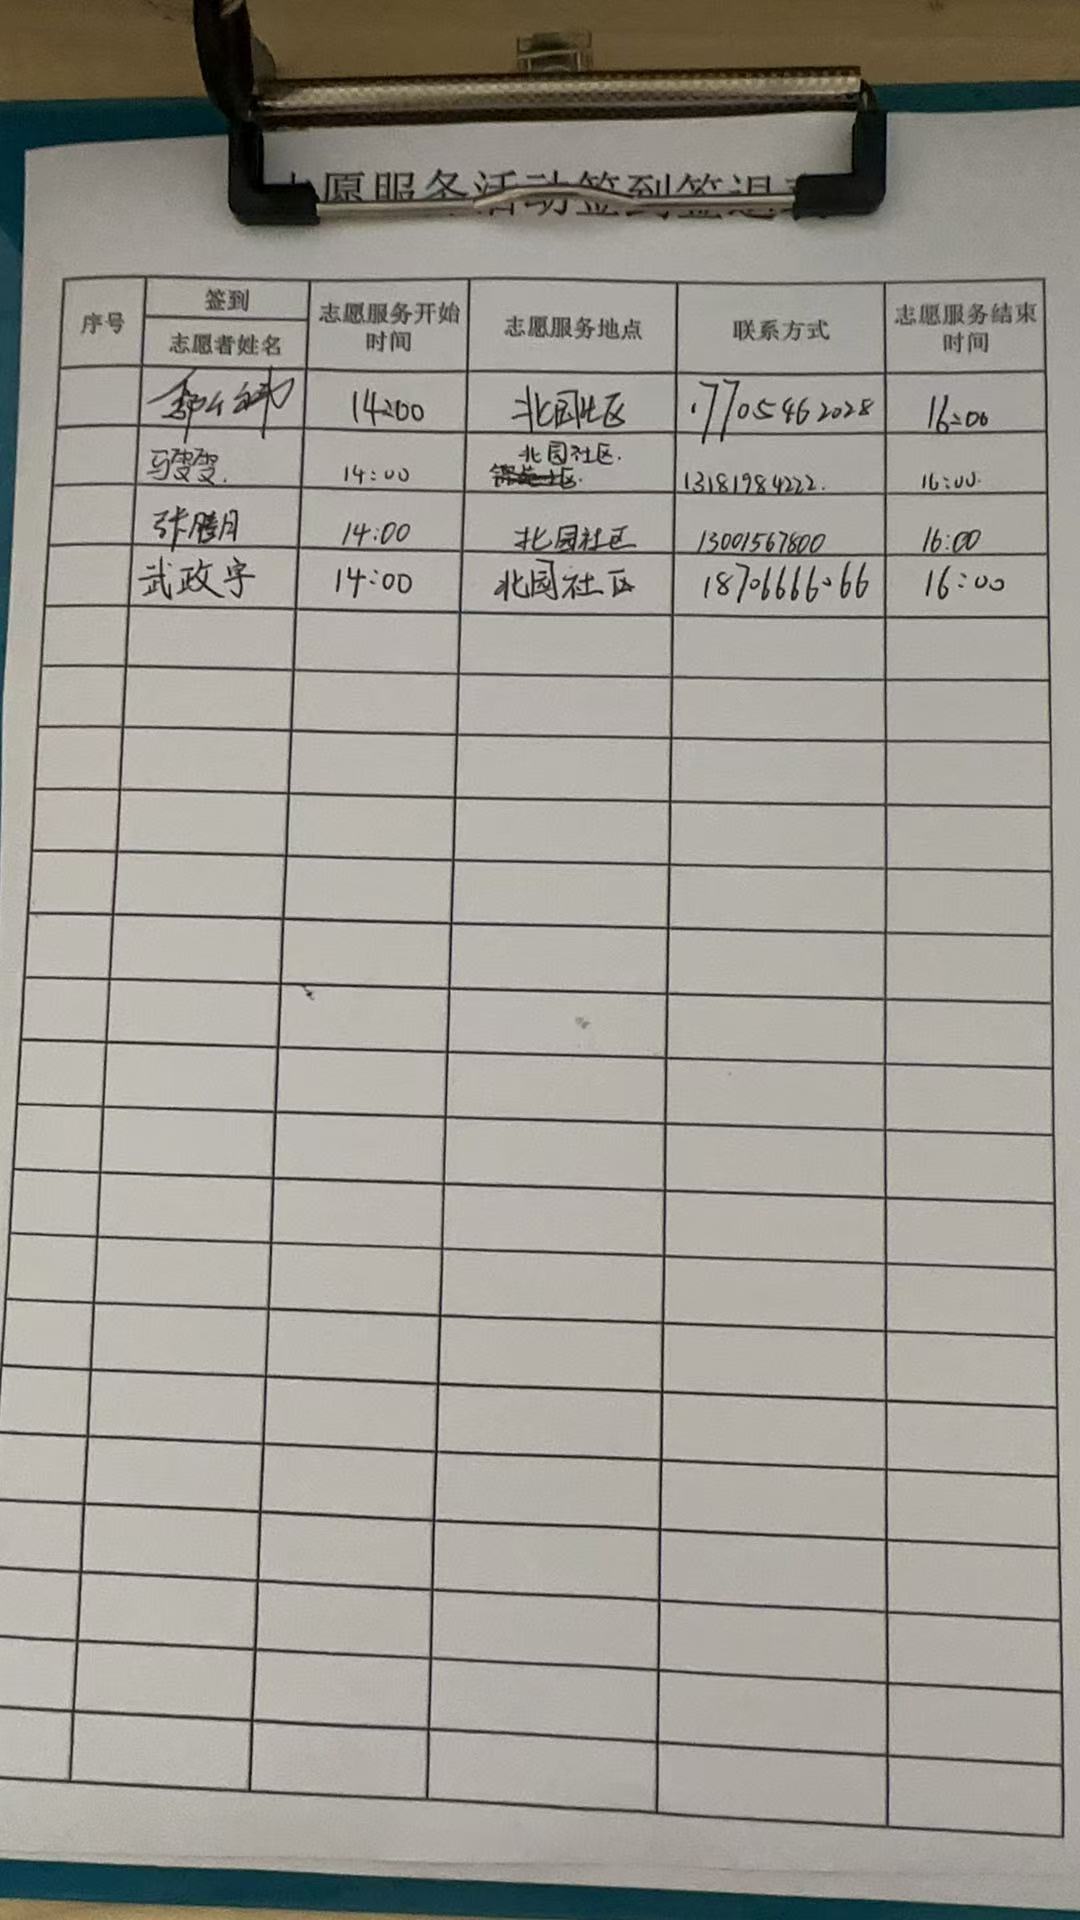 志愿服务活动签到签退表
序号 签到 志愿者姓名 志愿服务开始时间 志愿服务地点 联系方式 志愿服务结束时间
14:00 北园社区 17705462028 16:00
马雯雯. 14:00 北园社区. 13181984222. 16:00.
张腾月 14:00 北园社区 13001567800 16:00
武政宇 14:00 北园社区 18706666066 16:00